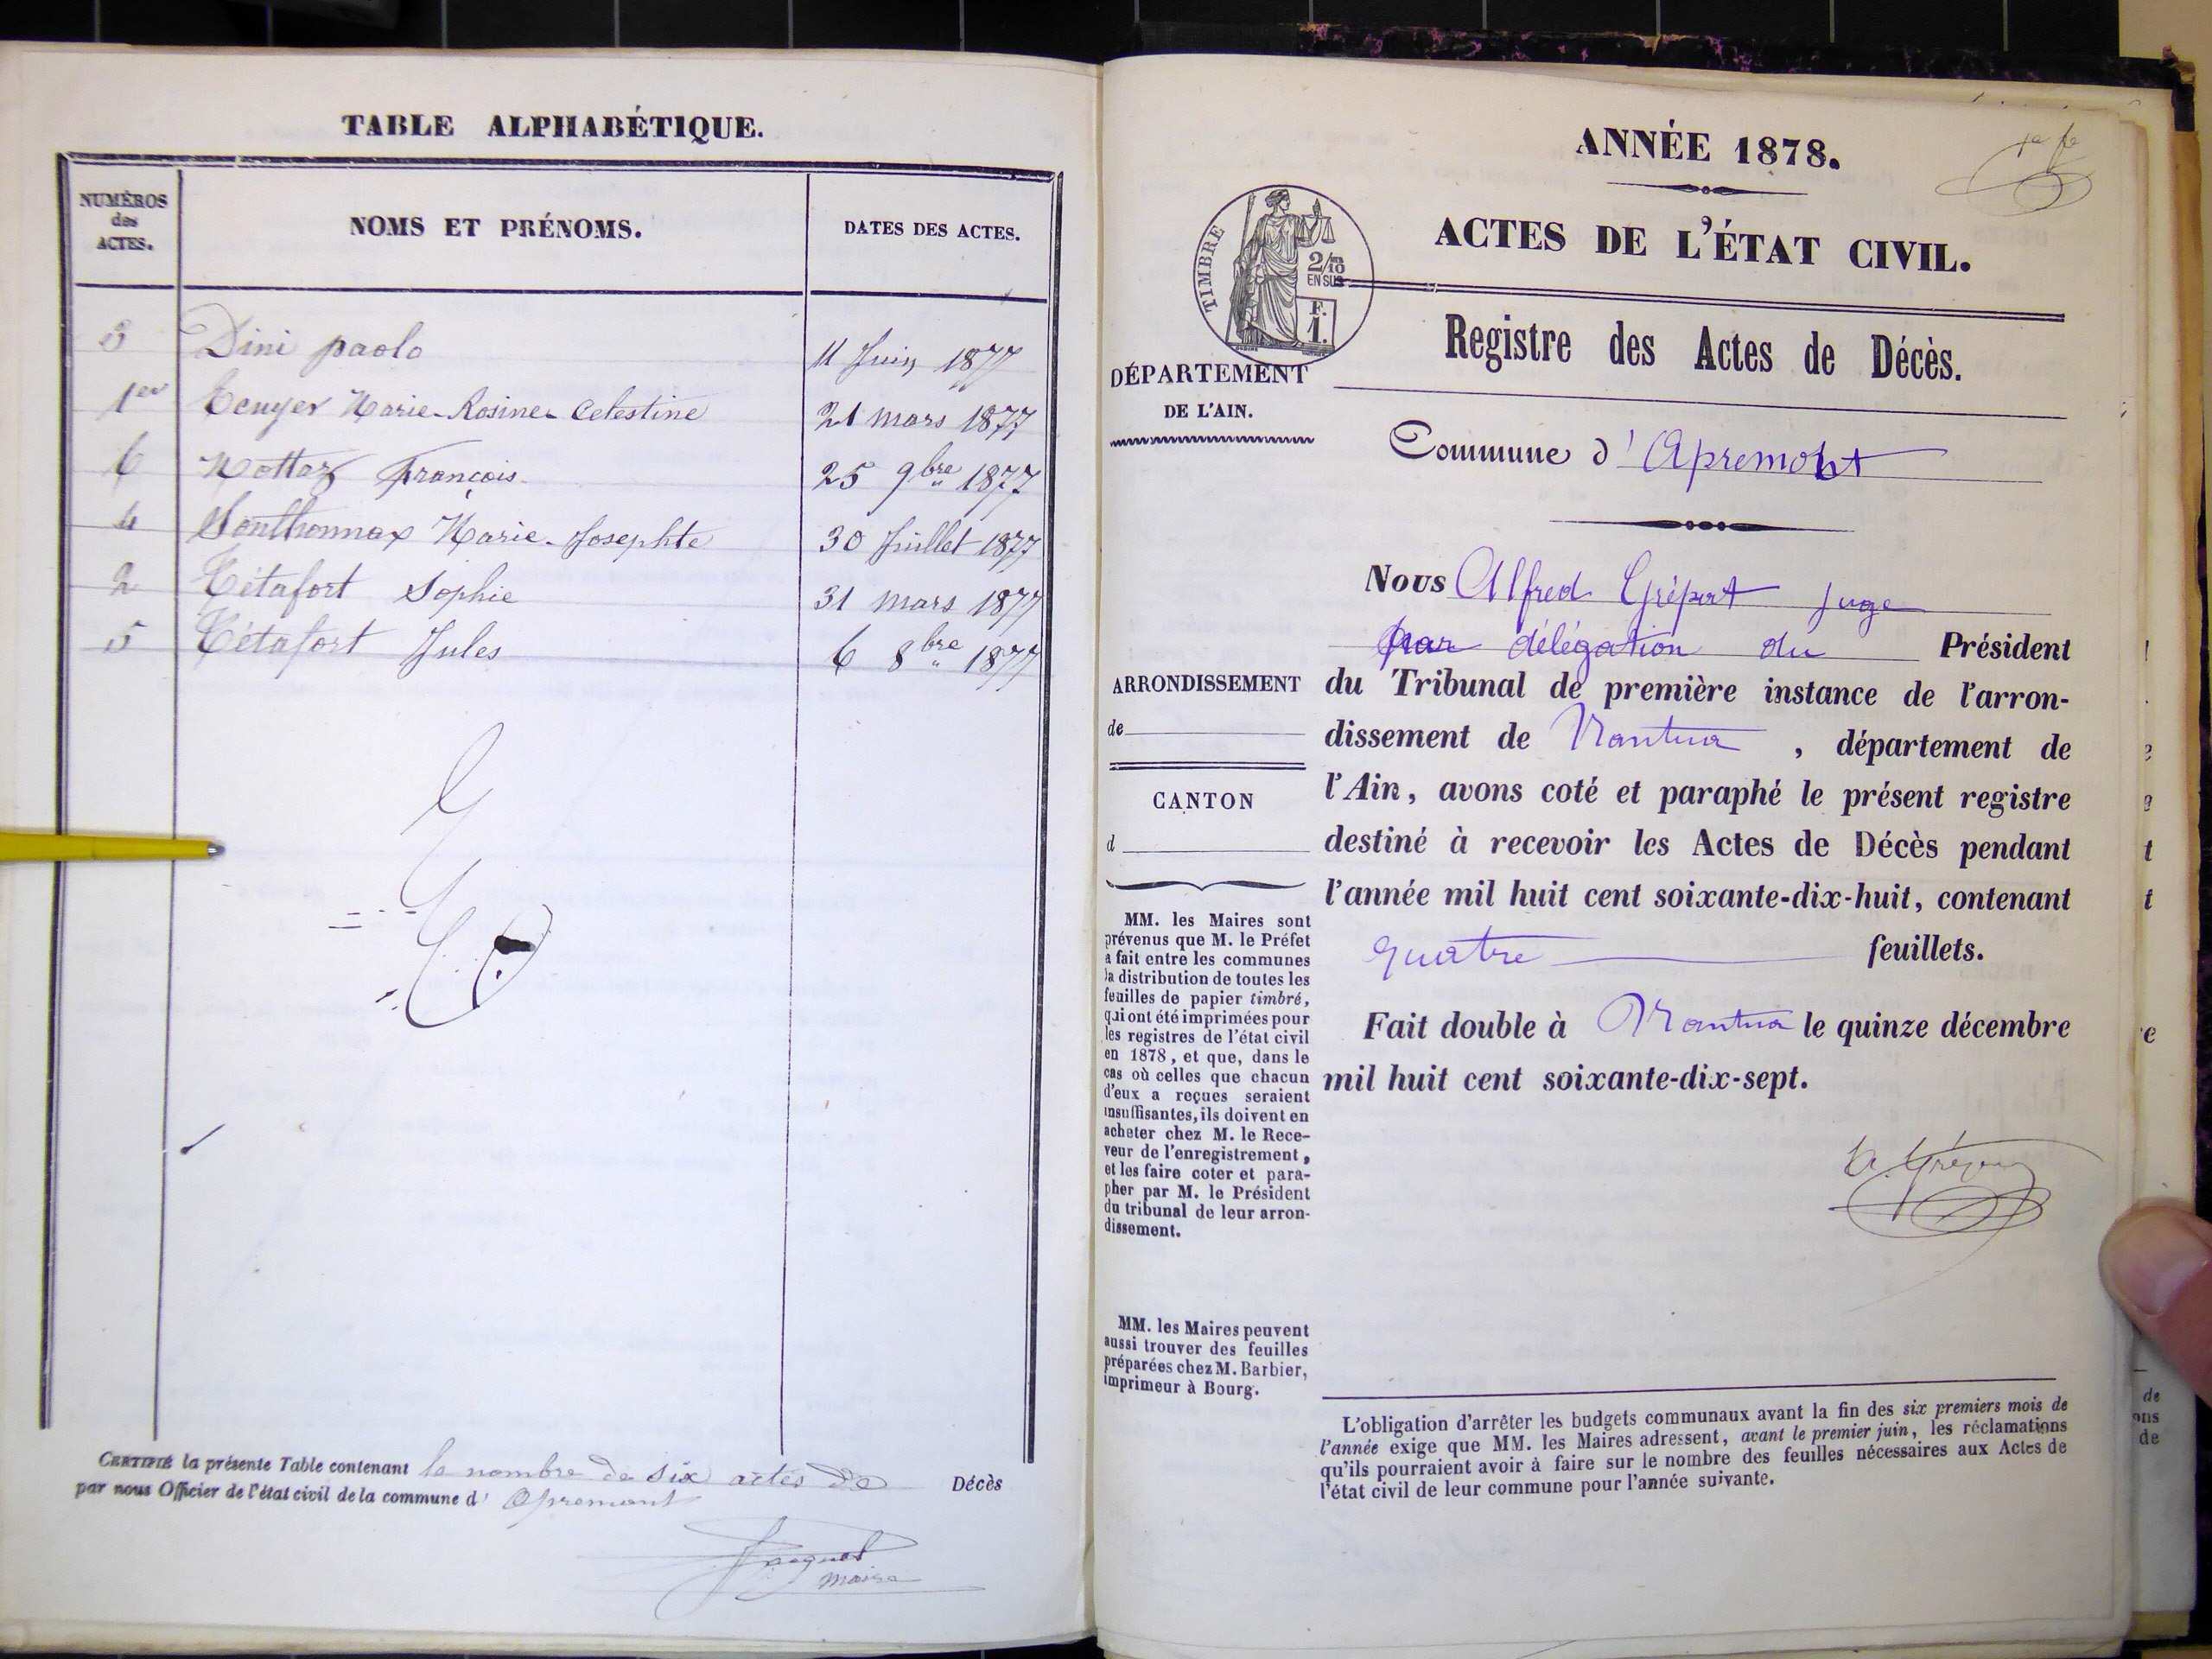 TABLE ALPHABÉTIQUE.
NUMÉROS
des
ACTES.
NOMS ET PRÉNOMS.
DATES DES ACTES.
3 Dini paolo 11 Juin 1877
1er Ecuyer Marie-Rosine-Celestine 21 mars 1877
6 Nottaz François. 25 9bre 1877
4 Sonthonnax Marie-Josephte 30 Juillet 1877
2 Tétafort Sophie 31 mars 1877
5 Tétafort Jules 6 8bre 1877
CERTIFIÉ la présente Table contenant le nombre de six actes de Décès
par nous Officier de l'état civil de la commune d' Apremont
maire
ANNÉE 1878.
ACTES DE L'ÉTAT CIVIL.
TIMBRE
2/10
EN SUS
F.
1.
Registre des Actes de Décès.
DÉPARTEMENT
DE L'AIN.
Commune d'Apremont
Nous Alfred juge
par délégation du Président
du Tribunal de première instance de l'arron-
dissement de Nantua, département de
l'Ain, avons coté et paraphé le présent registre
destiné à recevoir les Actes de Décès pendant
l'année mil huit cent soixante-dix-huit, contenant
quatre feuillets.
Fait double à Nantua le quinze décembre
mil huit cent soixante-dix-sept.
ARRONDISSEMENT
de
CANTON
d
MM. les Maires sont
prévenus que M. le Préfet
a fait entre les communes
la distribution de toutes les
feuilles de papier timbré,
qui ont été imprimées pour
les registres de l'état civil
en 1878, et que, dans le
cas où celles que chacun
d'eux a reçues seraient
insuffisantes, ils doivent en
acheter chez M. le Rece-
veur de l'enregistrement,
et les faire coter et para-
pher par M. le Président
du tribunal de leur arron-
dissement.
MM. les Maires peuvent
aussi trouver des feuilles
préparées chez M. Barbier,
imprimeur à Bourg.
L'obligation d'arrêter les budgets communaux avant la fin des six premiers mois de
l'année exige que MM. les Maires adressent, avant le premier juin, les réclamations
qu'ils pourraient avoir à faire sur le nombre des feuilles nécessaires aux Actes de
l'état civil de leur commune pour l'année suivante.